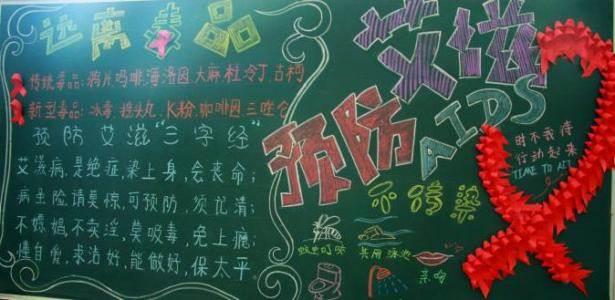 远离毒品
传统毒品:鸦片.吗啡.海洛因.大麻.杜冷丁.古柯
新型毒品:冰毒.摇头丸.K粉.咖啡因.三唑仑
预防艾滋"三字经"
艾滋病,是绝症,染上身,会丧命;
病虽险,请莫惊,可预防,须忧清;
不嫖娼,不卖淫,莫吸毒,免上瘾;
懂自爱,求洁好,能做好,保太平.
艾滋
预防
AIDS
不传染
蚊虫叮咬
共用泳池
亲吻
时不我待
行动起来
TIME TO AIT